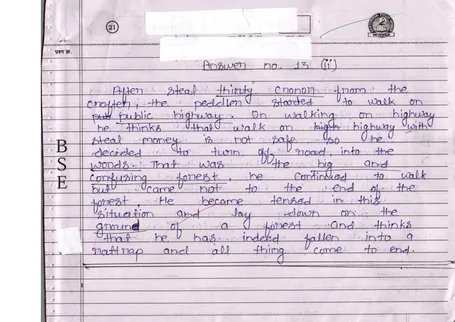 21
प्रश्न क्र.
Answer no. 13 (ii)
After steal thirty cronor from the
crofter, the peddler started to walk on
public highway. On walking on highway
he thinks that walk on highway with
steal money is not safe so he
decided to turn off road into the
woods. That was the big and
confusing forest. he continued to walk
but came not to the end of the
forest. He became tensed in this
situation and lay down on the
ground of a forest and thinks
that he has indeed fallen into a
rattrap and all thing come to end.
B
S
E